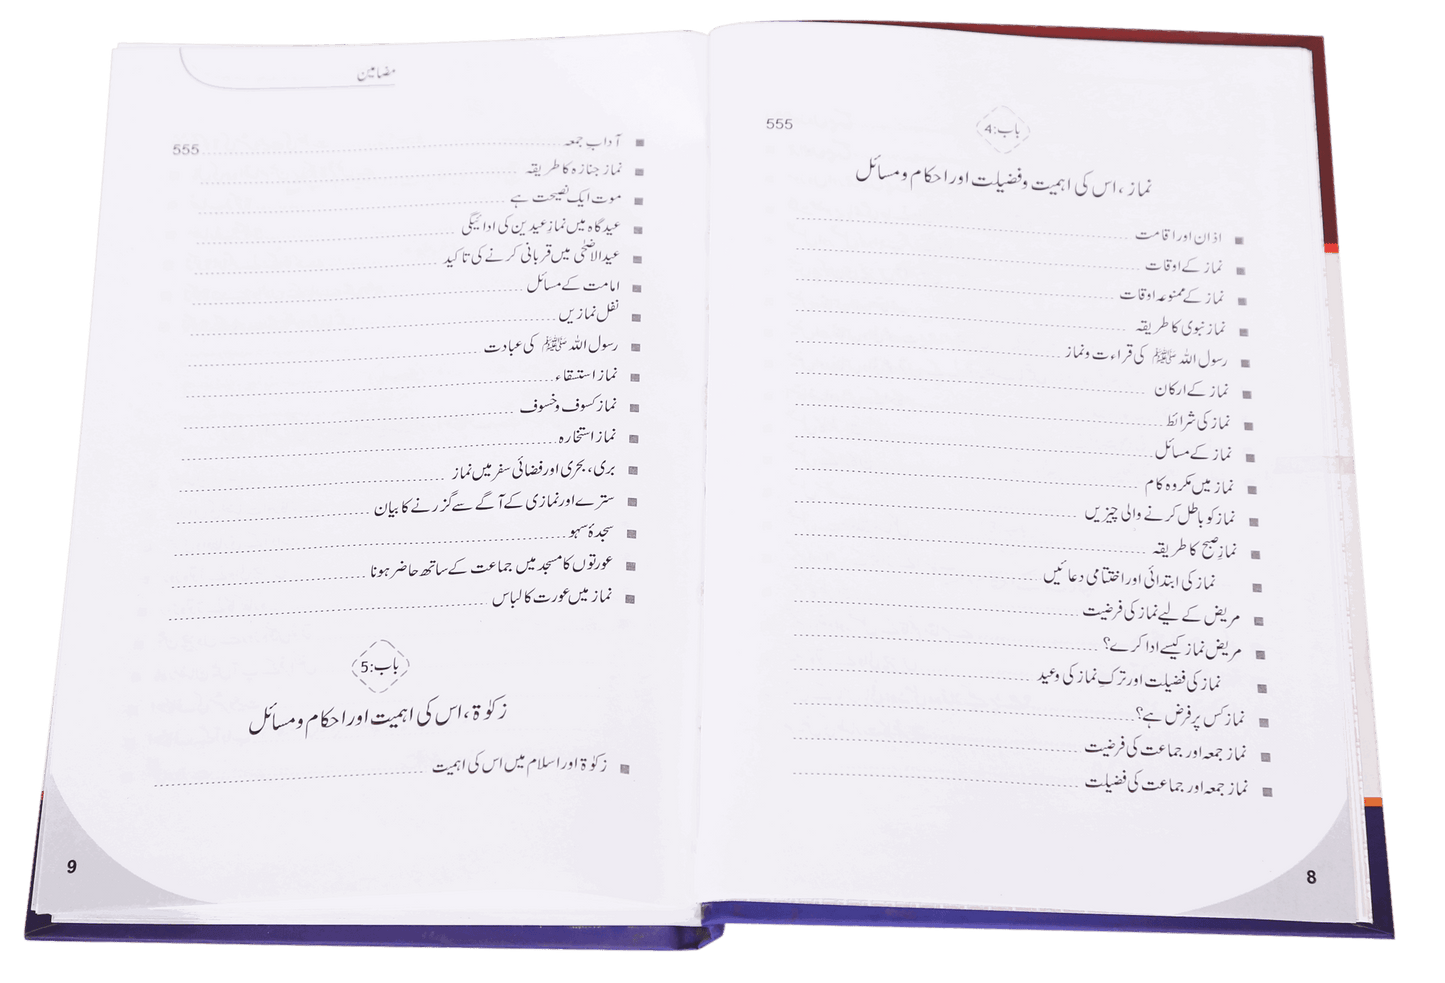 555
باب:4
نماز، اس کی اہمیت و فضیلت اور احکام و مسائل
اذان اور اقامت
نماز کے اوقات
نماز کے ممنوعہ اوقات
نماز نبوی کا طریقہ
رسول اللہ ﷺ کی قراءت و نماز
نماز کے ارکان
نماز کی شرائط
نماز کے مسائل
نماز میں مکروہ کام
نماز کو باطل کرنے والی چیزیں
نمازِ صبح کا طریقہ
نماز کی ابتدائی اور اختتامی دعائیں
مریض کے لیے نماز کی فرضیت
مریض نماز کیسے ادا کرے؟
نماز کی فضیلت اور ترکِ نماز کی وعید
نماز کس پر فرض ہے؟
نماز جمعہ اور جماعت کی فرضیت
نماز جمعہ اور جماعت کی فضیلت
8
مضامین
آداب جمعہ 555
نماز جنازہ کا طریقہ
موت ایک نصیحت ہے
عیدگاہ میں نمازِ عیدین کی ادائیگی
عیدالاضحی میں قربانی کرنے کی تاکید
امامت کے مسائل
نفل نمازیں
رسول اللہ ﷺ کی عبادت
نماز استسقاء
نماز کسوف و خسوف
نماز استخارہ
بری، بحری اور فضائی سفر میں نماز
سترے اور نمازی کے آگے سے گزرنے کا بیان
سجدۂ سہو
عورتوں کا مسجد میں جماعت کے ساتھ حاضر ہونا
نماز میں عورت کا لباس
باب:5
زکوٰۃ، اس کی اہمیت اور احکام و مسائل
زکوٰۃ اور اسلام میں اس کی اہمیت
9